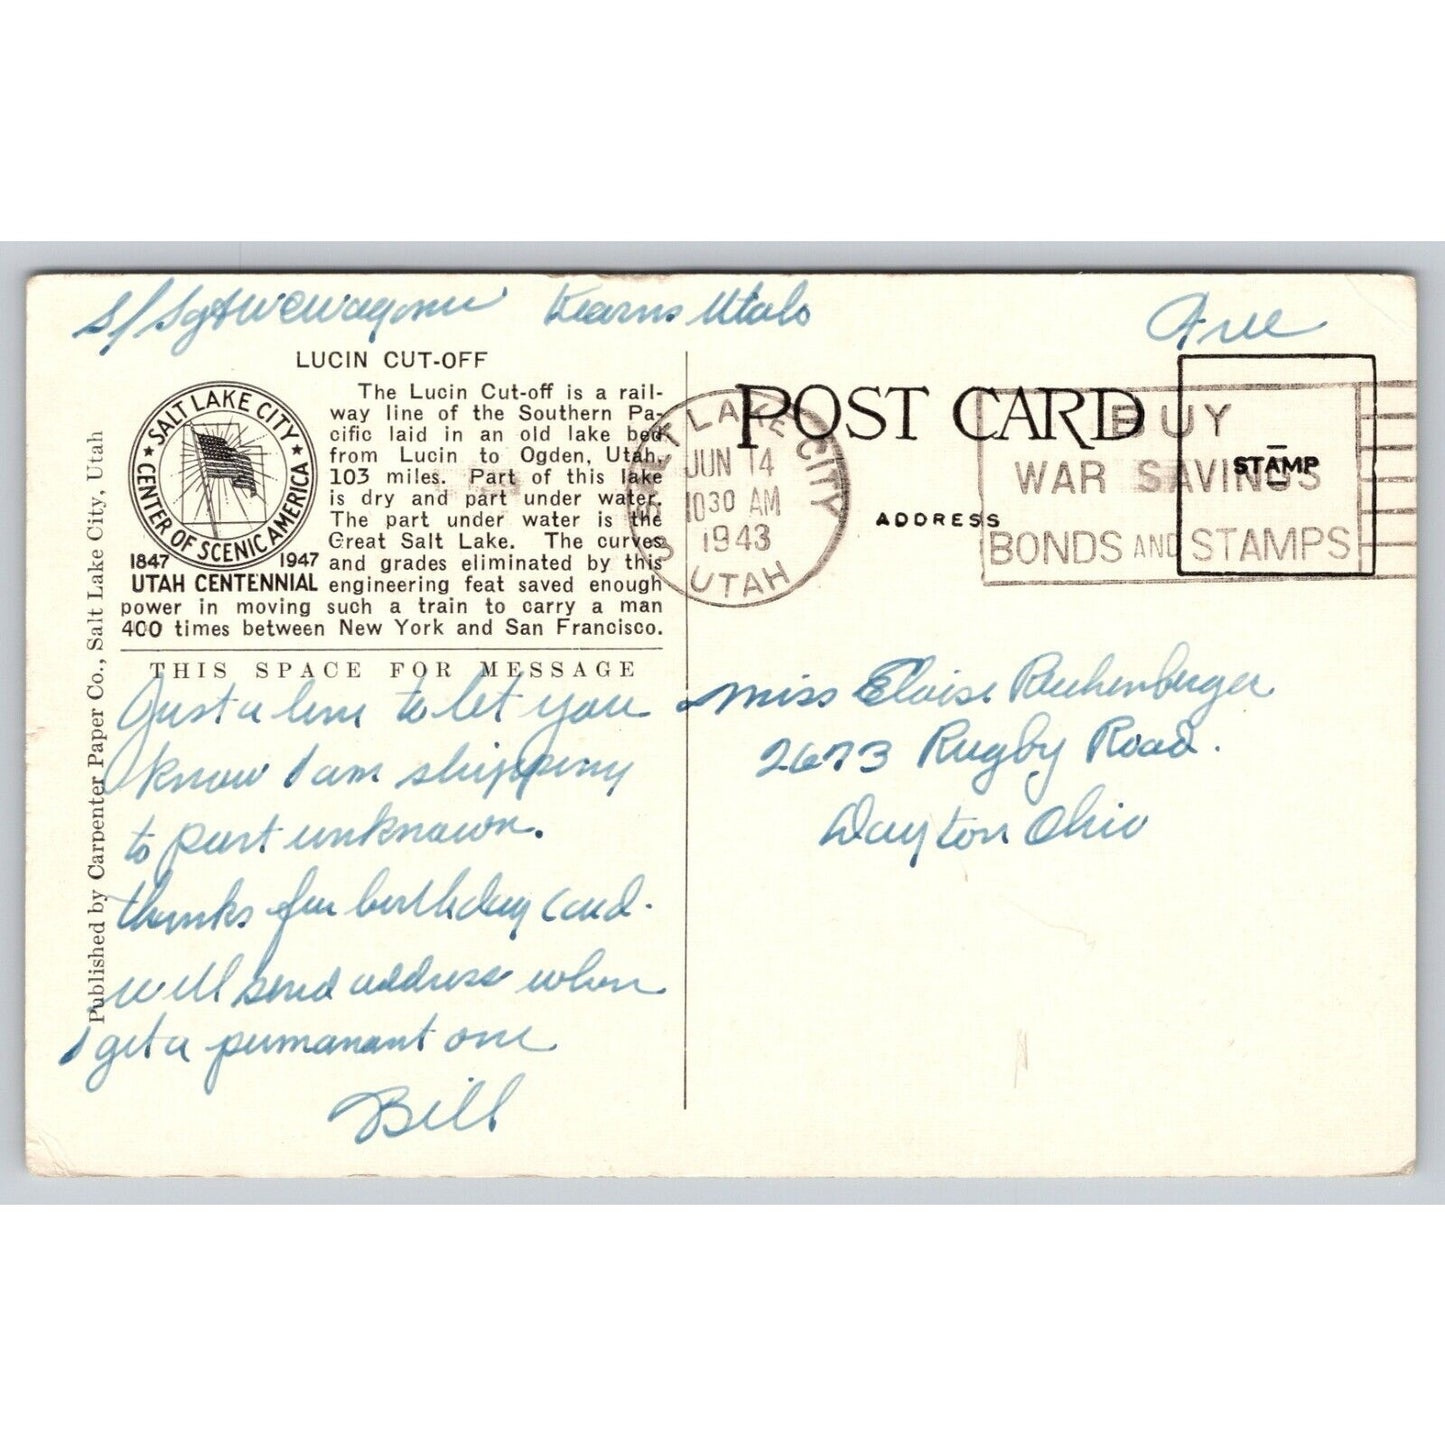 S/Sgt W C Wagoner Kearns Utah
Free
LUCIN CUT-OFF
The Lucin Cut-off is a rail-
way line of the Southern Pa-
cific laid in an old lake bed
from Lucin to Ogden, Utah,
103 miles. Part of this lake
is dry and part under water.
The part under water is the
Great Salt Lake. The curves
and grades eliminated by this
engineering feat saved enough
power in moving such a train to carry a man
400 times between New York and San Francisco.
SALT LAKE CITY
CENTER OF SCENIC AMERICA
1847 1947
UTAH CENTENNIAL
THIS SPACE FOR MESSAGE
Just a line to let you
know I am shipping
to part unknown.
thanks for birthday card.
will send address when
I get a permanant one
Bill
Published by Carpenter Paper Co., Salt Lake City, Utah
POST CARD
ADDRESS
STAMP
SALT LAKE CITY
JUN 14
10 30 AM
1943
3
UTAH
BUY
WAR SAVINGS
BONDS AND STAMPS
Miss Eloise
2673 Rugby Road.
Dayton Ohio